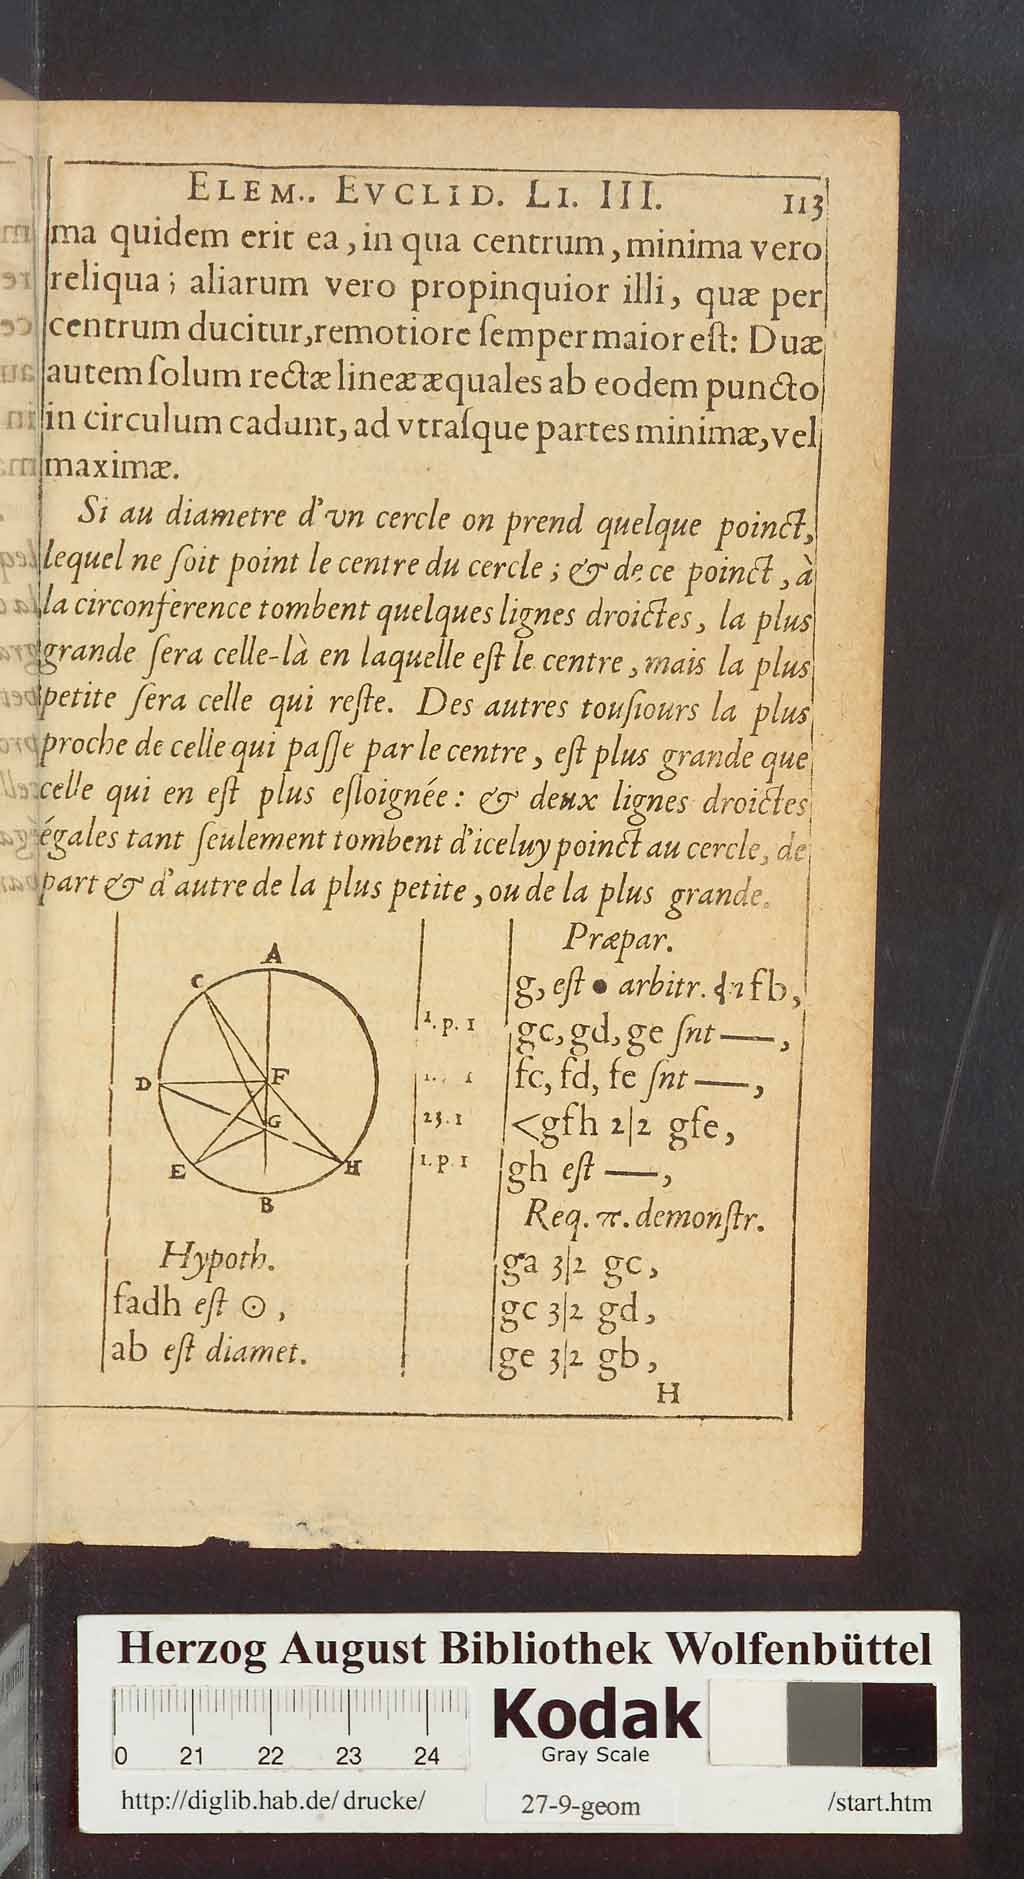 ELEM.. EVCLID. LI. III. 113
ma quidem erit ea, in qua centrum, minima vero
reliqua; aliarum vero propinquior illi, quæ per
centrum ducitur, remotiore ſemper maior eſt: Duæ
autem ſolum rectæ lineæ æquales ab eodem puncto
in circulum cadunt, ad vtraſque partes minimæ, vel
maximæ.
Si au diametre d'vn cercle on prend quelque poinct,
lequel ne ſoit point le centre du cercle; & de ce poinct, à
la circonference tombent quelques lignes droictes, la plus
grande ſera celle-là en laquelle eſt le centre, mais la plus
petite ſera celle qui reſte. Des autres touſiours la plus
proche de celle qui paſſe par le centre, eſt plus grande que
celle qui en eſt plus eſloignée: & deux lignes droictes
égales tant ſeulement tombent d'iceluy poinct au cercle, de
part & d'autre de la plus petite, ou de la plus grande.
A
C
D
F
G
E
H
B
Hypoth.
fadh eſt ☉,
ab eſt diamet.
Præpar.
g, eſt • arbitr. fb,
1. p. 1 gc, gd, ge ſnt —,
1. 1 fc, fd, fe ſnt —,
23. 1 <gfh 2|2 gfe,
1. p. 1 gh eſt —,
Req. π. demonſtr.
ga 3|2 gc,
gc 3|2 gd,
ge 3|2 gb,
H
Herzog August Bibliothek Wolfenbüttel
0 21 22 23 24
Kodak
Gray Scale
http://diglib.hab.de/drucke/ 27-9-geom /start.htm